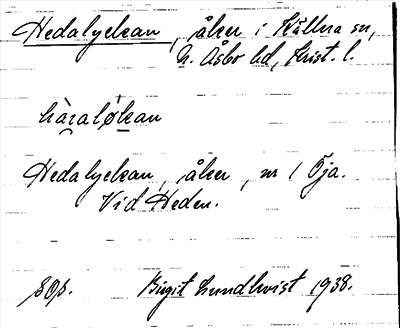 Hedalyckan, åker i Källna sn,
N. Åsbo hd, Krist. l.
hàralø̀kan
Hedalyckan, åker, nr 1 Öja.
Vid Heden.
Birgit Lundkvist 1938.